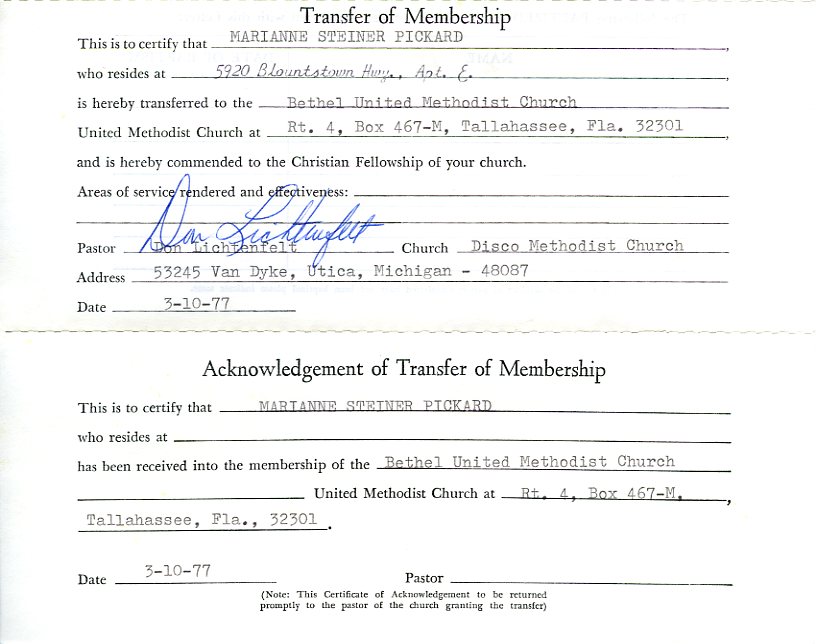 Transfer of Membership
This is to certify that MARIANNE STEINER PICKARD,
who resides at 5920 Blountstown Hwy., Apt. E.,
is hereby transferred to the Bethel United Methodist Church
United Methodist Church at Rt. 4, Box 467-M, Tallahassee, Fla. 32301,
and is hereby commended to the Christian Fellowship of your church.
Areas of service rendered and effectiveness:
Don Lichtenfelt
Pastor Don Lichtenfelt Church Disco Methodist Church
Address 53245 Van Dyke, Utica, Michigan - 48087
Date 3-10-77
Acknowledgement of Transfer of Membership
This is to certify that MARIANNE STEINER PICKARD
who resides at
has been received into the membership of the Bethel United Methodist Church
United Methodist Church at Rt. 4, Box 467-M,,
Tallahassee, Fla., 32301.
Date 3-10-77 Pastor
(Note: This Certificate of Acknowledgement to be returned
promptly to the pastor of the church granting the transfer)